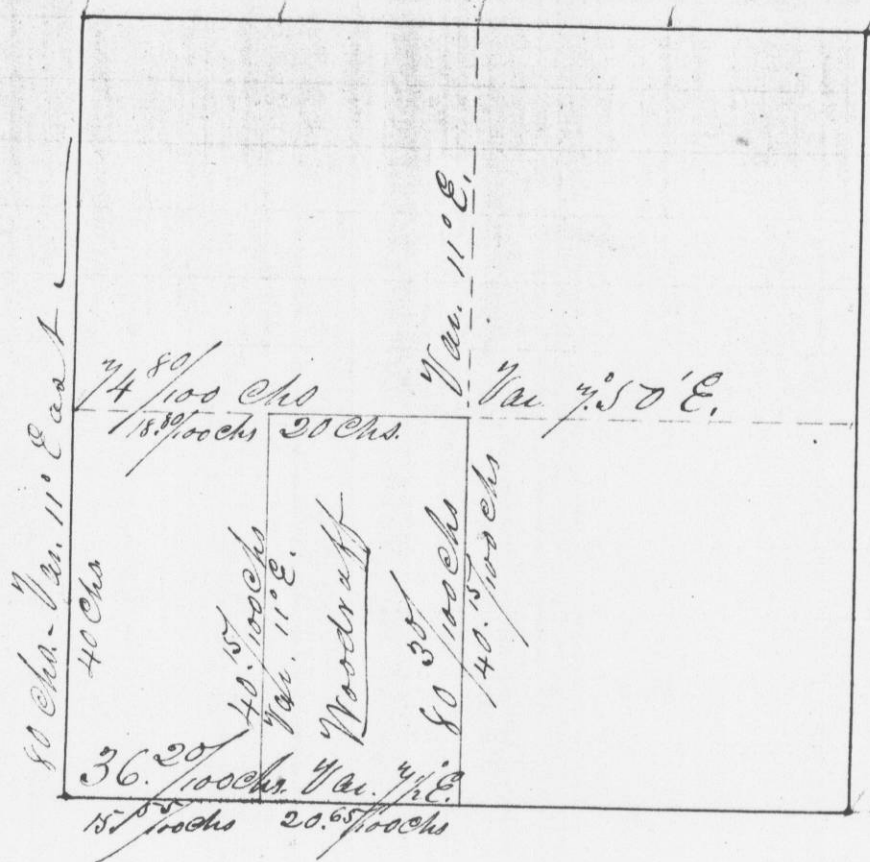 80 Chs. - Var. 11° East
Var. 11° E.
74 80/100 Chs
Var. 7° 50' E.
18.80/100 chs
20 Chs.
40 Chs
40.15/100 Chs
Var. 11° E.
Woodruff
80 30/100 Chs
40.15/100 chs
36.20/100 chs. Var. 7½° E.
15.55/100 chs
20.65/100 chs